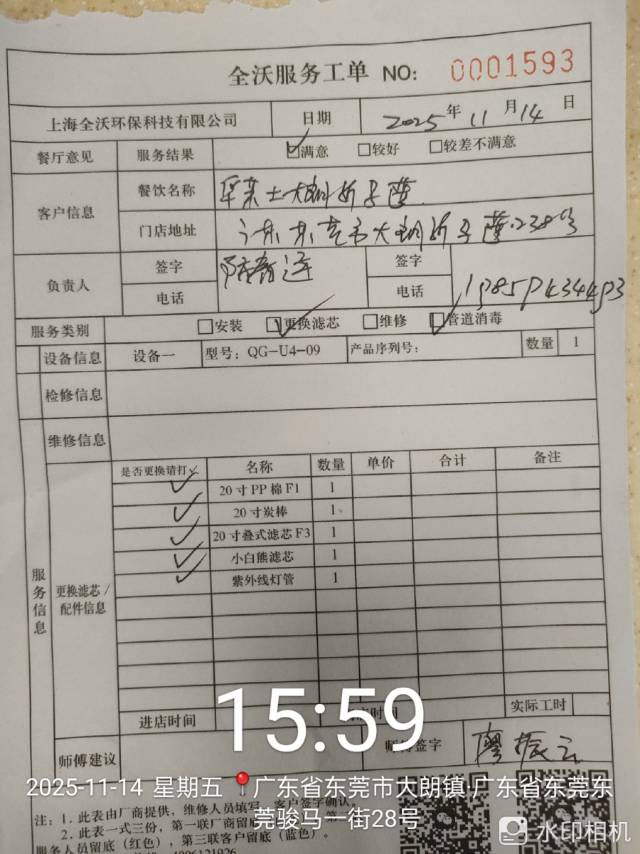 全沃服务工单 NO: 0001593
上海全沃环保科技有限公司 日期 2025年11月14日
餐厅意见 服务结果 ☑满意 □较好 □较差不满意
客户信息 餐饮名称
门店地址
负责人 签字 签字
电话 电话
服务类别 □安装 ☑更换滤芯 □维修 ☑管道消毒
设备信息 设备一 型号：QG-U4-09 产品序列号： 数量 1
检修信息
维修信息
服务信息
更换滤芯/配件信息
是否更换请打✓ 名称 数量 单价 合计 备注
✓ 20寸PP棉F1 1
✓ 20寸炭棒 1
✓ 20寸叠式滤芯F3 1
✓ 小白熊滤芯 1
✓ 紫外线灯管 1
进店时间 时间 实际工时
15:59
师傅建议 签字 廖振云
2025-11-14 星期五 广东省东莞市大朗镇·广东省东莞东
莞骏马一街28号
注：1. 此表由厂商提供，维修人员填写，客户签字确认。
2. 此表一式三份，第一联厂商留底
服务人员留底（红色），第三联客户留底（蓝色）。
水印相机